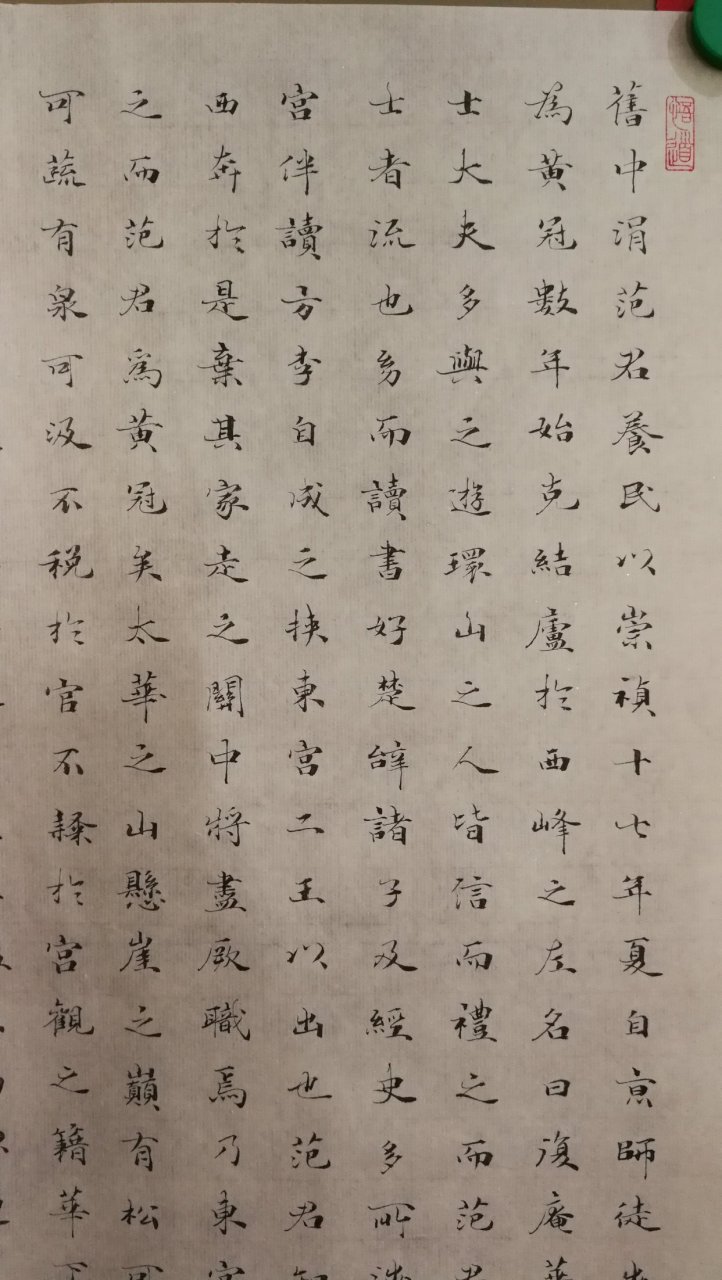 悟道
舊中涓范君養民以崇禎十七年夏自京師徒
為黃冠數年始克結廬於西峰之左名曰復庵華
士大夫多與之遊環山之人皆信而禮之而范君
士者流也幼而讀書好楚辭諸子及經史多所涉
宮伴讀方李自成之挾東宮二王以出也范君知
西奔於是棄其家走之關中將盡厥職焉乃東宮
之而范君爲黃冠矣太華之山懸崖之巔有松可
可蔬有泉可汲不稅於官不隸於宮觀之籍華下